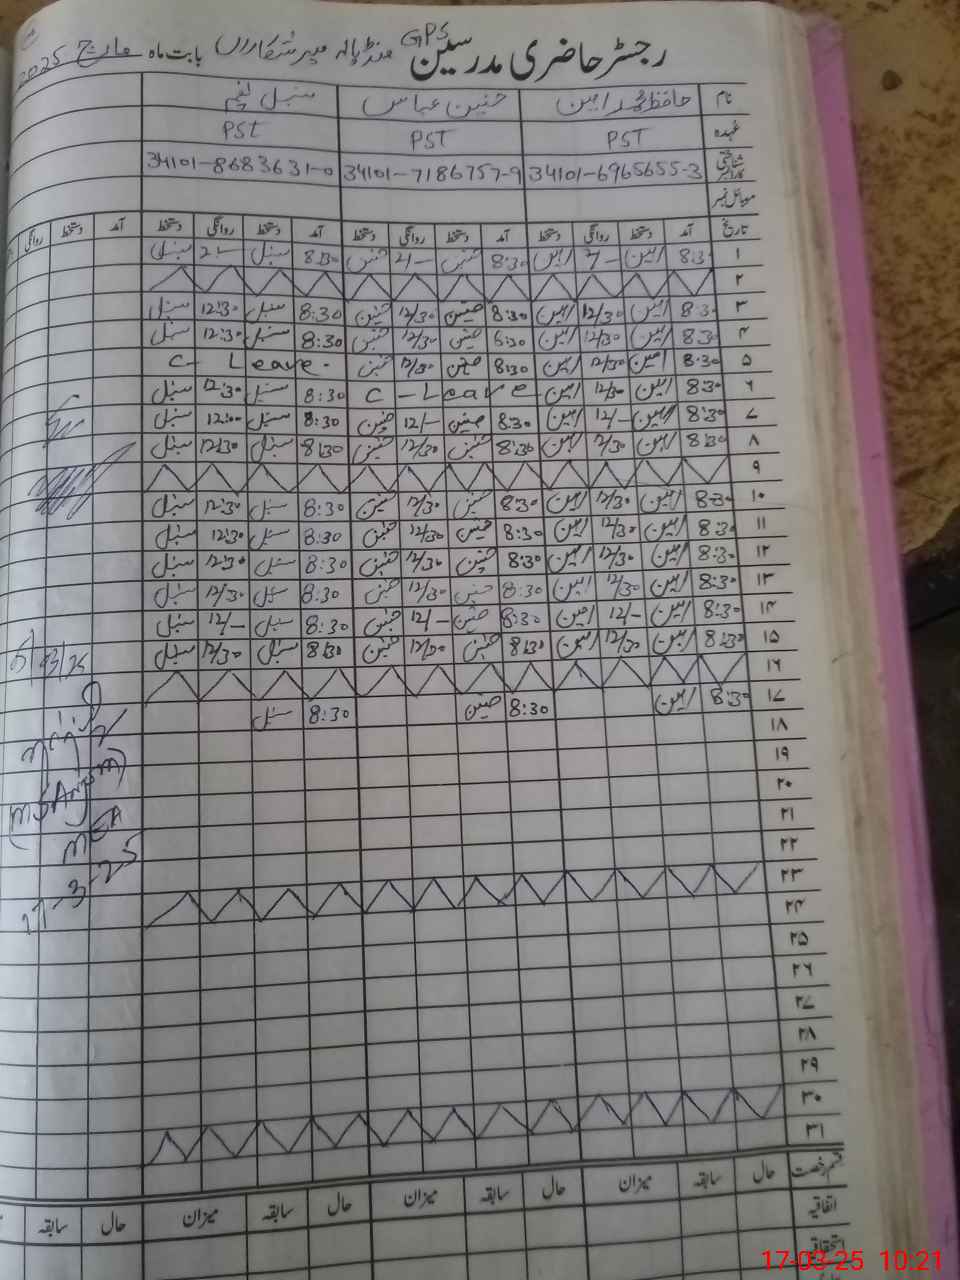 رجسٹر حاضری مدرسین GPS منڈیالہ میر شکاراں بابت ماہ مارچ 2025
نام حافظ محمد امین حسنین عباس سنبل
عہدہ PST PST PST
شناختی کارڈ نمبر 34101-6965655-3 34101-7186757-9 34101-8683631-0
موبائل نمبر
تاریخ آمد دستخط روانگی دستخط آمد دستخط روانگی دستخط آمد دستخط روانگی دستخط آمد دستخط روانگی
۱ 8:30 امین 2/- امین 8:30 حسنین 2/- حسنین 8:30 سنبل 2/- سنبل
۲
۳ 8:30 امین 12/30 امین 8:30 حسنین 12/30 حسنین 8:30 سنبل 12:30 سنبل
۴ 8:30 امین 12/30 امین 8:30 حسنین 12/30 حسنین 8:30 سنبل 12:30 سنبل
۵ 8:30 امین 12/30 امین 8:30 حسنین 12/30 حسنین C- Leave.
۶ 8:30 امین 12/30 امین C-Leave 8:30 سنبل 12:30 سنبل
۷ 8:30 امین 12/- امین 8:30 حسنین 12/- حسنین 8:30 سنبل 12:00 سنبل
۸ 8:30 امین 12/30 امین 8:30 حسنین 12/30 حسنین 8:30 سنبل 12:30 سنبل
۹
۱۰ 8:30 امین 12/30 امین 8:30 حسنین 12/30 حسنین 8:30 سنبل 12:30 سنبل
۱۱ 8:30 امین 12/30 امین 8:30 حسنین 12/30 حسنین 8:30 سنبل 12:30 سنبل
۱۲ 8:30 امین 12/30 امین 8:30 حسنین 12/30 حسنین 8:30 سنبل 12:30 سنبل
۱۳ 8:30 امین 12/30 امین 8:30 حسنین 12/30 حسنین 8:30 سنبل 12/30 سنبل
۱۴ 8:30 امین 12/- امین 8:30 حسنین 12/- حسنین 8:30 سنبل 12/- سنبل
۱۵ 8:30 امین 12/30 امین 8:30 حسنین 12/30 حسنین 8:30 سنبل 12/30 سنبل
۱۶
۱۷ 8:30 امین 8:30 حسنین 8:30 سنبل
۱۸
۱۹
۲۰
۲۱
۲۲
۲۳
۲۴
۲۵
۲۶
۲۷
۲۸
۲۹
۳۰
۳۱
MEA
17-3-25
قسم رخصت حال سابقہ میزان حال سابقہ میزان حال سابقہ میزان حال سابقہ
اتفاقیہ
استحقاقیہ
17-03-25 10:21